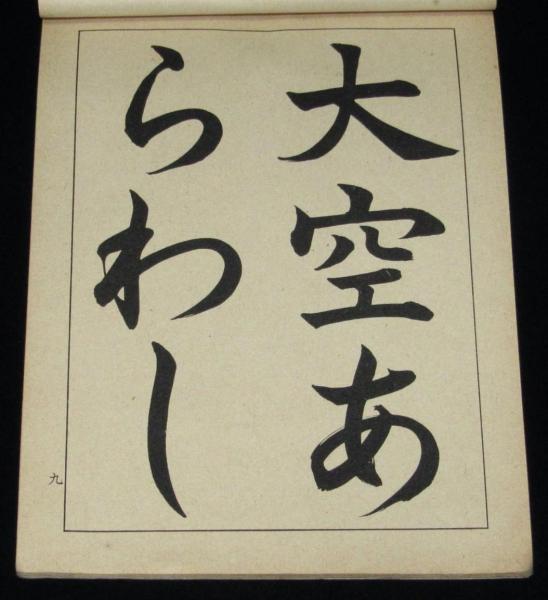 大空あ
らわし
九